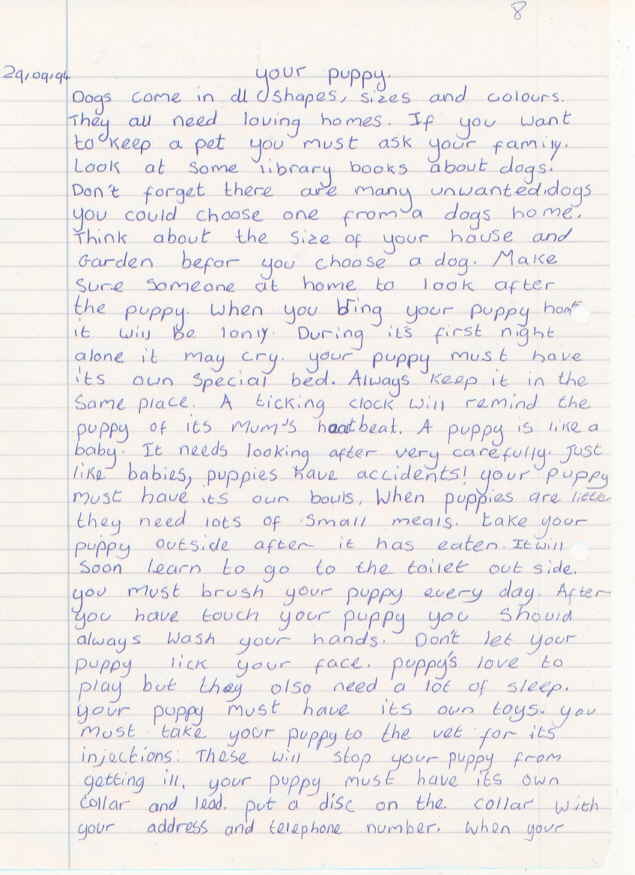 8
29/09/94
your puppy.
Dogs come in all shapes, sizes and colours.
They all need loving homes. If you want
to keep a pet you must ask your family.
Look at some library books about dogs.
Don't forget there are many unwanted dogs
you could choose one from a dogs home.
Think about the size of your house and
Garden befor you choose a dog. Make
sure someone at home to look after
the puppy. When you bring your puppy home
it will be lonly. During it's first night
alone it may cry. your puppy must have
its own special bed. Always keep it in the
same place. A ticking clock will remind the
puppy of its mum's heatbeat. A puppy is like a
baby. It needs looking after very carefully. Just
like babies, puppies have accidents! your puppy
must have its own bowls. When puppies are litter
they need lots of small meals. take your
puppy outside after it has eaten. It will
soon learn to go to the toilet out side.
you must brush your puppy every day. After
you have touch your puppy you should
always wash your hands. Don't let your
puppy lick your face. puppy's love to
play but they also need a lot of sleep.
your puppy must have its own toys. you
must take your puppy to the vet for its
injections. These will stop your puppy from
getting ill. your puppy must have its own
collar and lead. put a disc on the collar with
your address and telephone number. When your